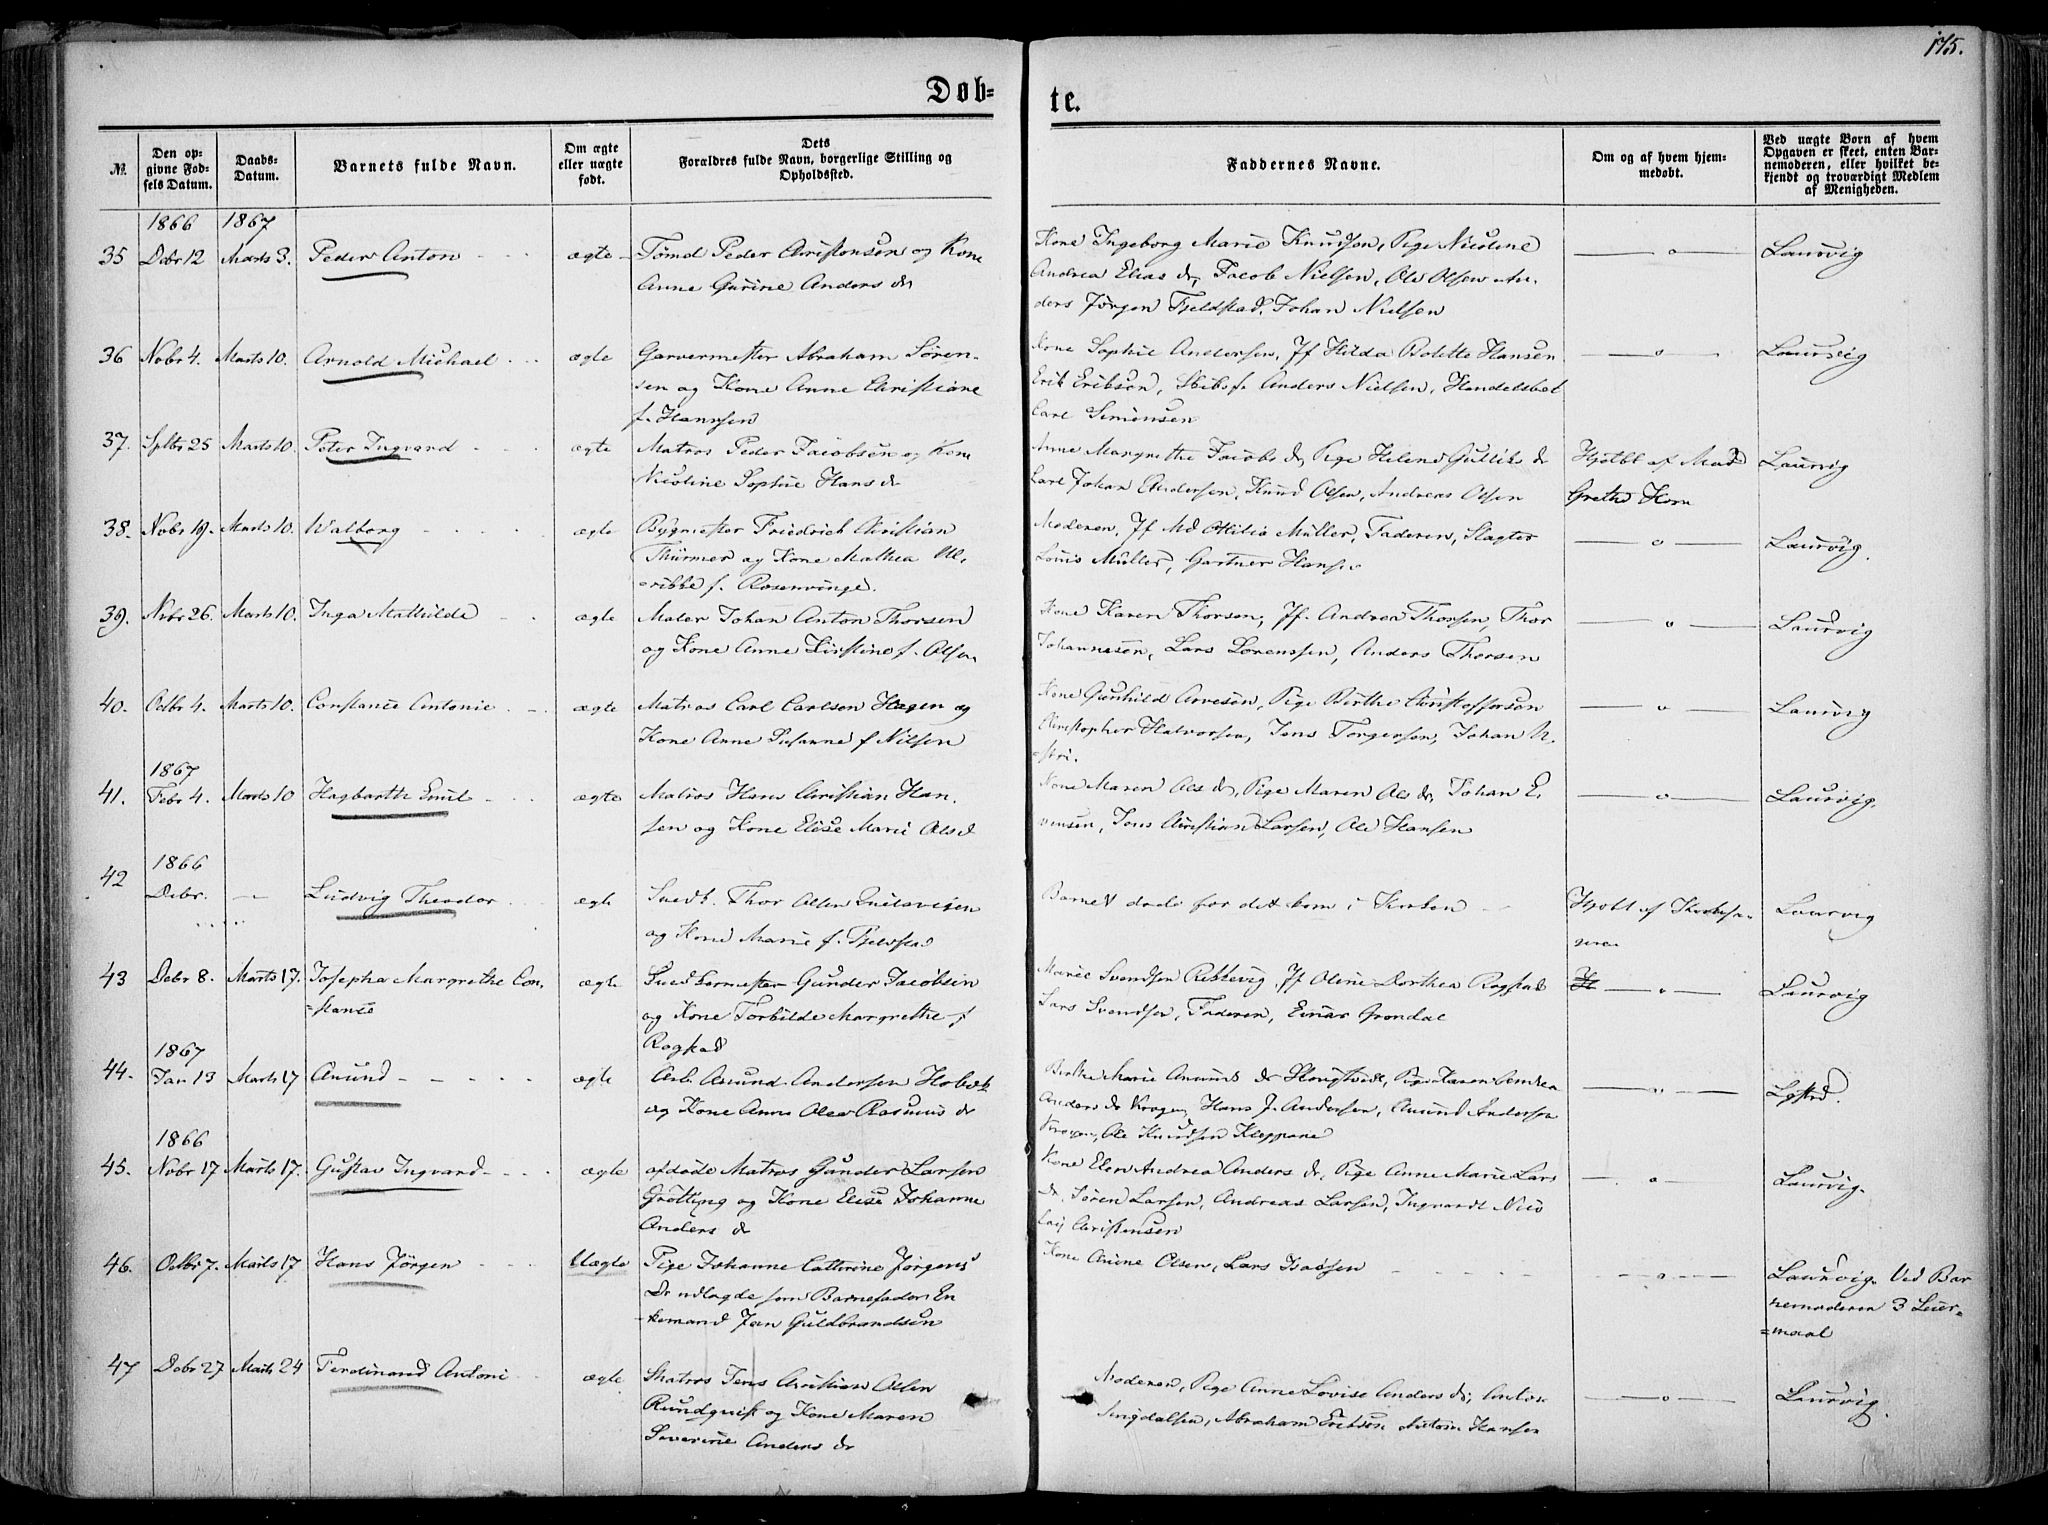 175.
Døb=
te.
№.
Den op=
givne Fød=
sels Datum.
Daabs=
Datum.
Barnets fulde Navn.
Om ægte
eller uægte
født.
Dets
Forældres fulde Navn, borgerlige Stilling og
Opholdssted.
Faddernes Navne.
Om og af hvem hjem=
medøbt.
Ved uægte Børn af hvem
Opgaven er skeet, enten Bar=
nemoderen, eller hvilket be=
kjendt og troværdigt Medlem
af Menigheden.
1866 1867
35 Debr 12 Marts 3. Peder Anton ægte Tømd Peder Christensen og Kone
Anne Gurine Anders dr
Kone Ingeborg Marie Knudsen, Pige Nicoline
Andrea Elias dr, Jacob Nielsen, Ole Olsen An-
ders Jørgen Fjeldstad, Johan Nielsen
Laurvig
36 Nobr 4. Marts 10. Arnold Michael ægte Garvermester Abraham Søren-
sen og Kone Anne Christiane
f. Hanssen
Kone Sophie Andersen, Jf Hilda Bolette Hansen
Erik Eriksen, Skibsf. Anders Nielsen, Handelsbet
Carl Simensen
Laurvig
37. Sptbr 25 Marts 10. Peter Ingvard ægte Matros Peder Jacobsen og Kone
Nicoline Sophie Hans dr
Anne Margrethe Jacobs dr, Pige Helene Gulliks dr
Carl Johan Andersen, Knud Olsen, Andreas Olsen
Hjdbt af Mad
Grethe Horn
Laurvig
38. Nobr 19. Marts 10. Walborg ægte Bygmester Friedrich Christian
Thürmer og Kone Mathea Ul-
=rikke f. Rosenvinge.
Moderen, Jf Md Ottilia Müller, Faderen, Slagter
Louis Müller, Gartner Hansen
Laurvig.
39. Nvbr 26. Marts 10. Inga Mathilde ægte Maler Johan Anton Thorsen
og Kone Anne Kirstine f. Olsen
Kone Karen Thorsen, Jf. Andrea Thorsen, Thor
Johannesen, Lars Lorenssen, Anders Thorsen
Laurvig
40. Octbr 4. Marts 10. Constance Antonie ægte Matros Carl Carlsen Hagen og
Kone Anne Susanne f Nilsen
Kone Gunhild Arvesen, Pige Birthe Christoffersen
Christopher Halvorsen, Jens Torgersen, Johan
Laurvig
1867
41. Febr 4. Marts 10 Hagbarth Emil ægte Matros Hans Christian Han-
sen og Kone Elise Marie Olsd
Kone Maren Ols dr, Pige Maren Ols dr, Johan E-
vensen, Jens Christian Larsen, Ole Hansen
Laurvig.
1866
42 Debr. Ludvig Theodor ægte Smedk. Thor Olsen
og Kone Marie f. Fjeldstad
Barnet døde før det kom i Kirken
Hjdbt af
Laurvig
43 Debr 8. Marts 17. Josepha Margrethe Con-
=stance ægte Smedkermester Gunder Jacobsen
og Kone Torbilde Margrethe f
Rogstad
Marie Svendsen Rekkevig, Jf Oline Dorthea Rogstad
Lars Svendsen, Faderen, Einar Grondal
Laurvig
1867
44. Jan 13 Marts 17 Amund ægte Arb. Amund Andersen
og Kone Anne Olea Rasmus dr
Birthe Marie Amunds dr
Anders dr Kragen, Hans J. Andersen, Amund Andersen
Kragen, Ole Knudsen Kleppane
1866
45. Nobr 17 Marts 17. Gustav Ingvard ægte afdøde Matros Gunder Larsen
Grøtting og Kone Elise Johanne
Anders dr
Kone Elen Andrea Anders dr, Pige Anne Marie Lars
dr, Søren Larsen, Andreas Larsen, Ingvardt Nico
laij Christensen
Laurvig.
46. Octbr 7. Marts 17 Hans Jørgen Uægte Pige Johanne Cathrine Jørgens
Dr udlagde som Barnefader En
=kemand Jan Guldbrandsen
Kone Anine Olsen, Lars Isacsen
Laurvig. Ved Bar
nemoderen 3 Leier=
=maal
47 Debr 27 Marts 24 Ferdinand Antoni ægte Matros Jens Christian Olsen
Rundquist og Kone Maren
Severine Anders dr
Moderen, Pige Anne Lovise Anders dr, Anton
Singdalsen, Abraham Eriksen Anton Hansen
Laurvig.